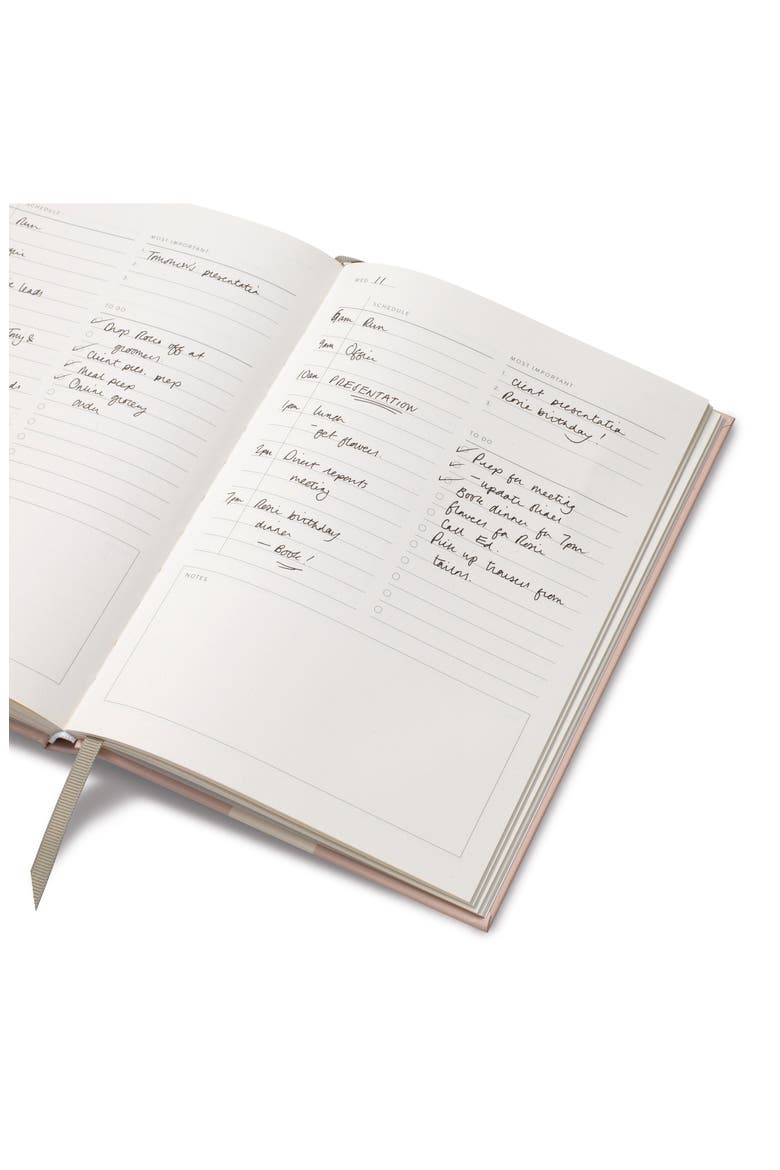 SCHEDULE
Run
leads
MOST IMPORTANT
1. Tomorrow's presentation
2.
3.
TO DO
Drop Rosie off at
groomers
Client pres. prep
Meal prep
Online grocery
order
WED 11
SCHEDULE
6am Run
9am Office
10am PRESENTATION
1pm lunch
- get flowers.
3pm Direct reports
meeting
7pm Rosie birthday
dinner
- Book!
MOST IMPORTANT
1. Client presentation
2. Rosie birthday!
3.
TO DO
Prep for meeting
- update slides
Book dinner for 7pm
flowers for Rosie
Call Ed.
Pick up trousers from
tailors.
NOTES